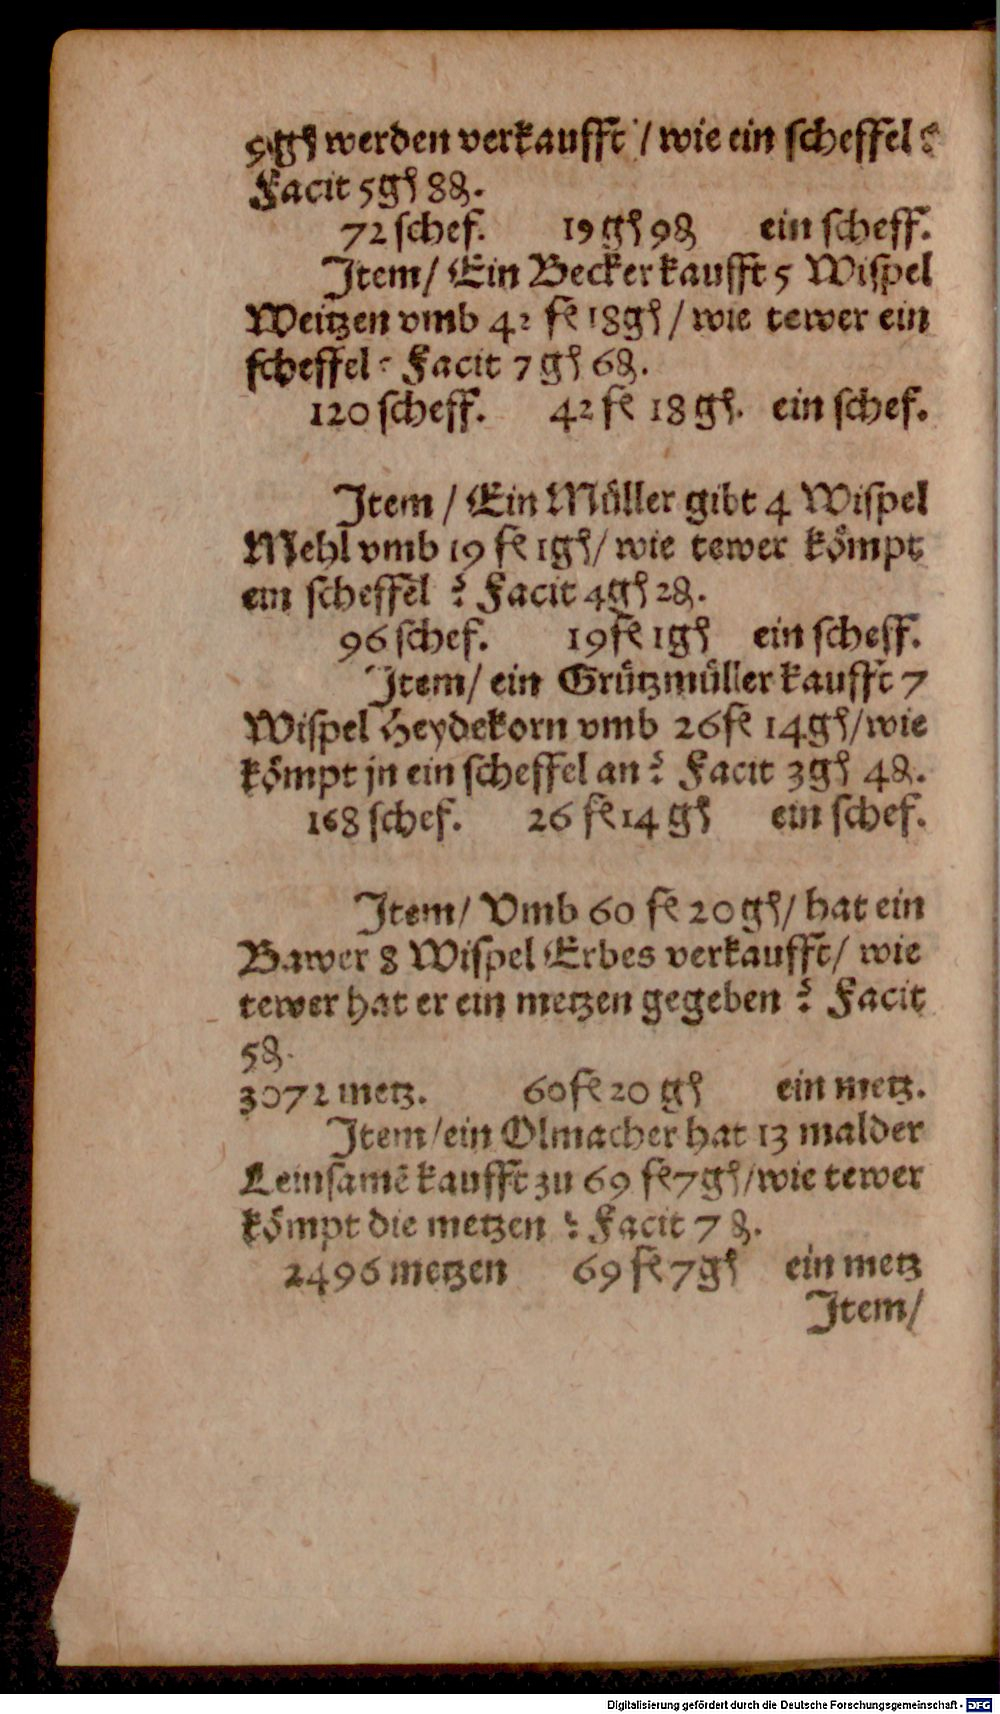 9 gſ werden verkaufft / wie ein ſcheffel ?
Facit 5 gſ 8 ₰.
72 ſchef. 19 gſ 9 ₰ ein ſcheff.
Item / Ein Becker kaufft 5 Wiſpel
Weitzen vmb 42 fℓ 18 gſ / wie tewer ein
ſcheffel ? Facit 7 gſ 6 ₰.
120 ſcheff. 42 fℓ 18 gſ. ein ſchef.
Item / Ein Müller gibt 4 Wiſpel
Mehl vmb 19 fℓ 1 gſ / wie tewer kömpt
ein ſcheffel ? Facit 4 gſ 2 ₰.
96 ſchef. 19 fℓ 1 gſ ein ſcheff.
Item / ein Grützmüller kaufft 7
Wiſpel Heydekorn vmb 26 fℓ 14 gſ / wie
kömpt jn ein ſcheffel an ? Facit 3 gſ 4 ₰.
168 ſchef. 26 fℓ 14 gſ ein ſchef.
Item / Vmb 60 fℓ 20 gſ / hat ein
Bawer 8 Wiſpel Erbes verkaufft / wie
tewer hat er ein metzen gegeben ? Facit
5 ₰.
3072 metz. 60 fℓ 20 gſ ein metz.
Item / ein Olmacher hat 13 malder
Leinſamē kaufft zu 69 fℓ 7 gſ / wie tewer
kömpt die metzen ? Facit 7 ₰.
2496 metzen 69 fℓ 7 gſ ein metz
Item /
Digitalisierung gefördert durch die Deutsche Forschungsgemeinschaft - DFG